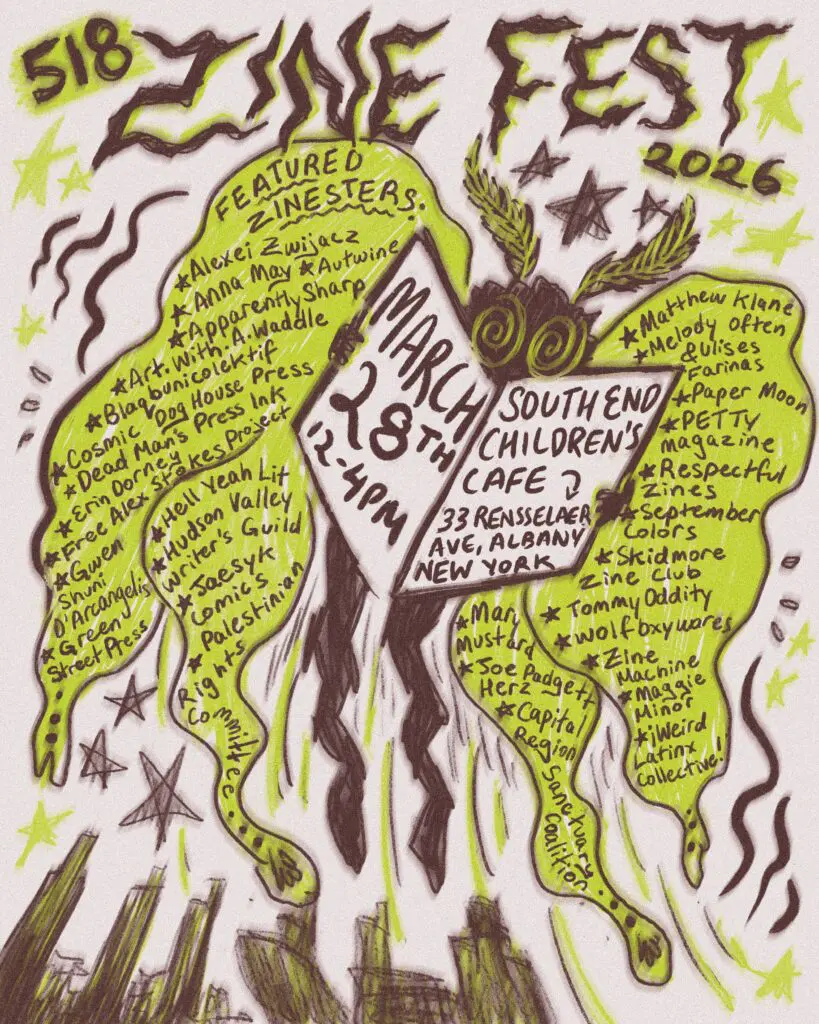 518 ZINE FEST
2026
FEATURED
ZINESTERS.
*Alexei Zwijacz
*Anna May *Autwine
*Apparently Sharp
*Art. With. A. Waddle
*Blaqbunicolektif
*Cosmic Dog House Press
*Dead Man's Press Ink
*Erin Dorney
*Free Alex Stokes Project
*Gwen
Shuni
D'Arcangelis
*Green
Street Press
*Hell Yeah Lit
*Hudson Valley
Writer's Guild
*Jaesyk
Comic's
*Palestinian
Rights
Committee
MARCH
28TH
12-4PM
SOUTH END
CHILDREN'S
CAFE
33 RENSSELAER
AVE, ALBANY
NEW YORK
*Matthew Klane
*Melody Often
& Ulises
Farinas
*Paper Moon
*PETTY
magazine
*Respectful
Zines
*September
Colors
*Skidmore
Zine Club
*Tommy Oddity
*Wolfboxywares
*Zine
Machine
*Maggie
Minor
*jWeird
Latinx
Collective!
*Mary
Mustard
*Joe Padgett
Herz
*Capital
Region
Sanctuary
Coalition